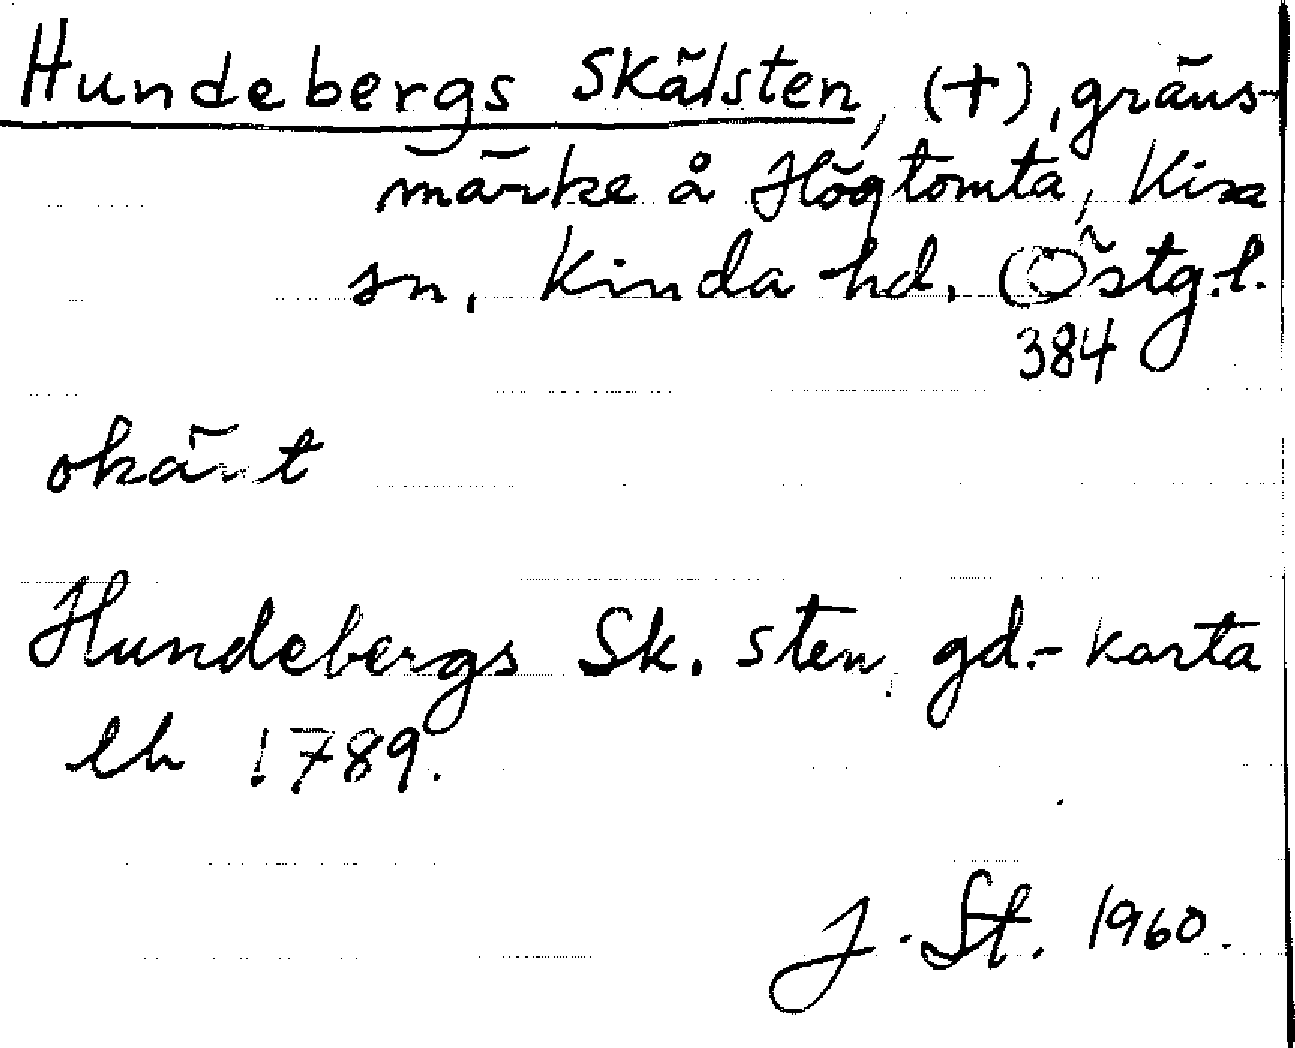 Hundebergs Skälsten, (+), gräns-
märke å Högtomta, Kisa
sn, Kinda hd. Östg.l.
384
okänt
Hundebergs Sk. sten, gd.-karta
lh 1789.
J. St. 1960.